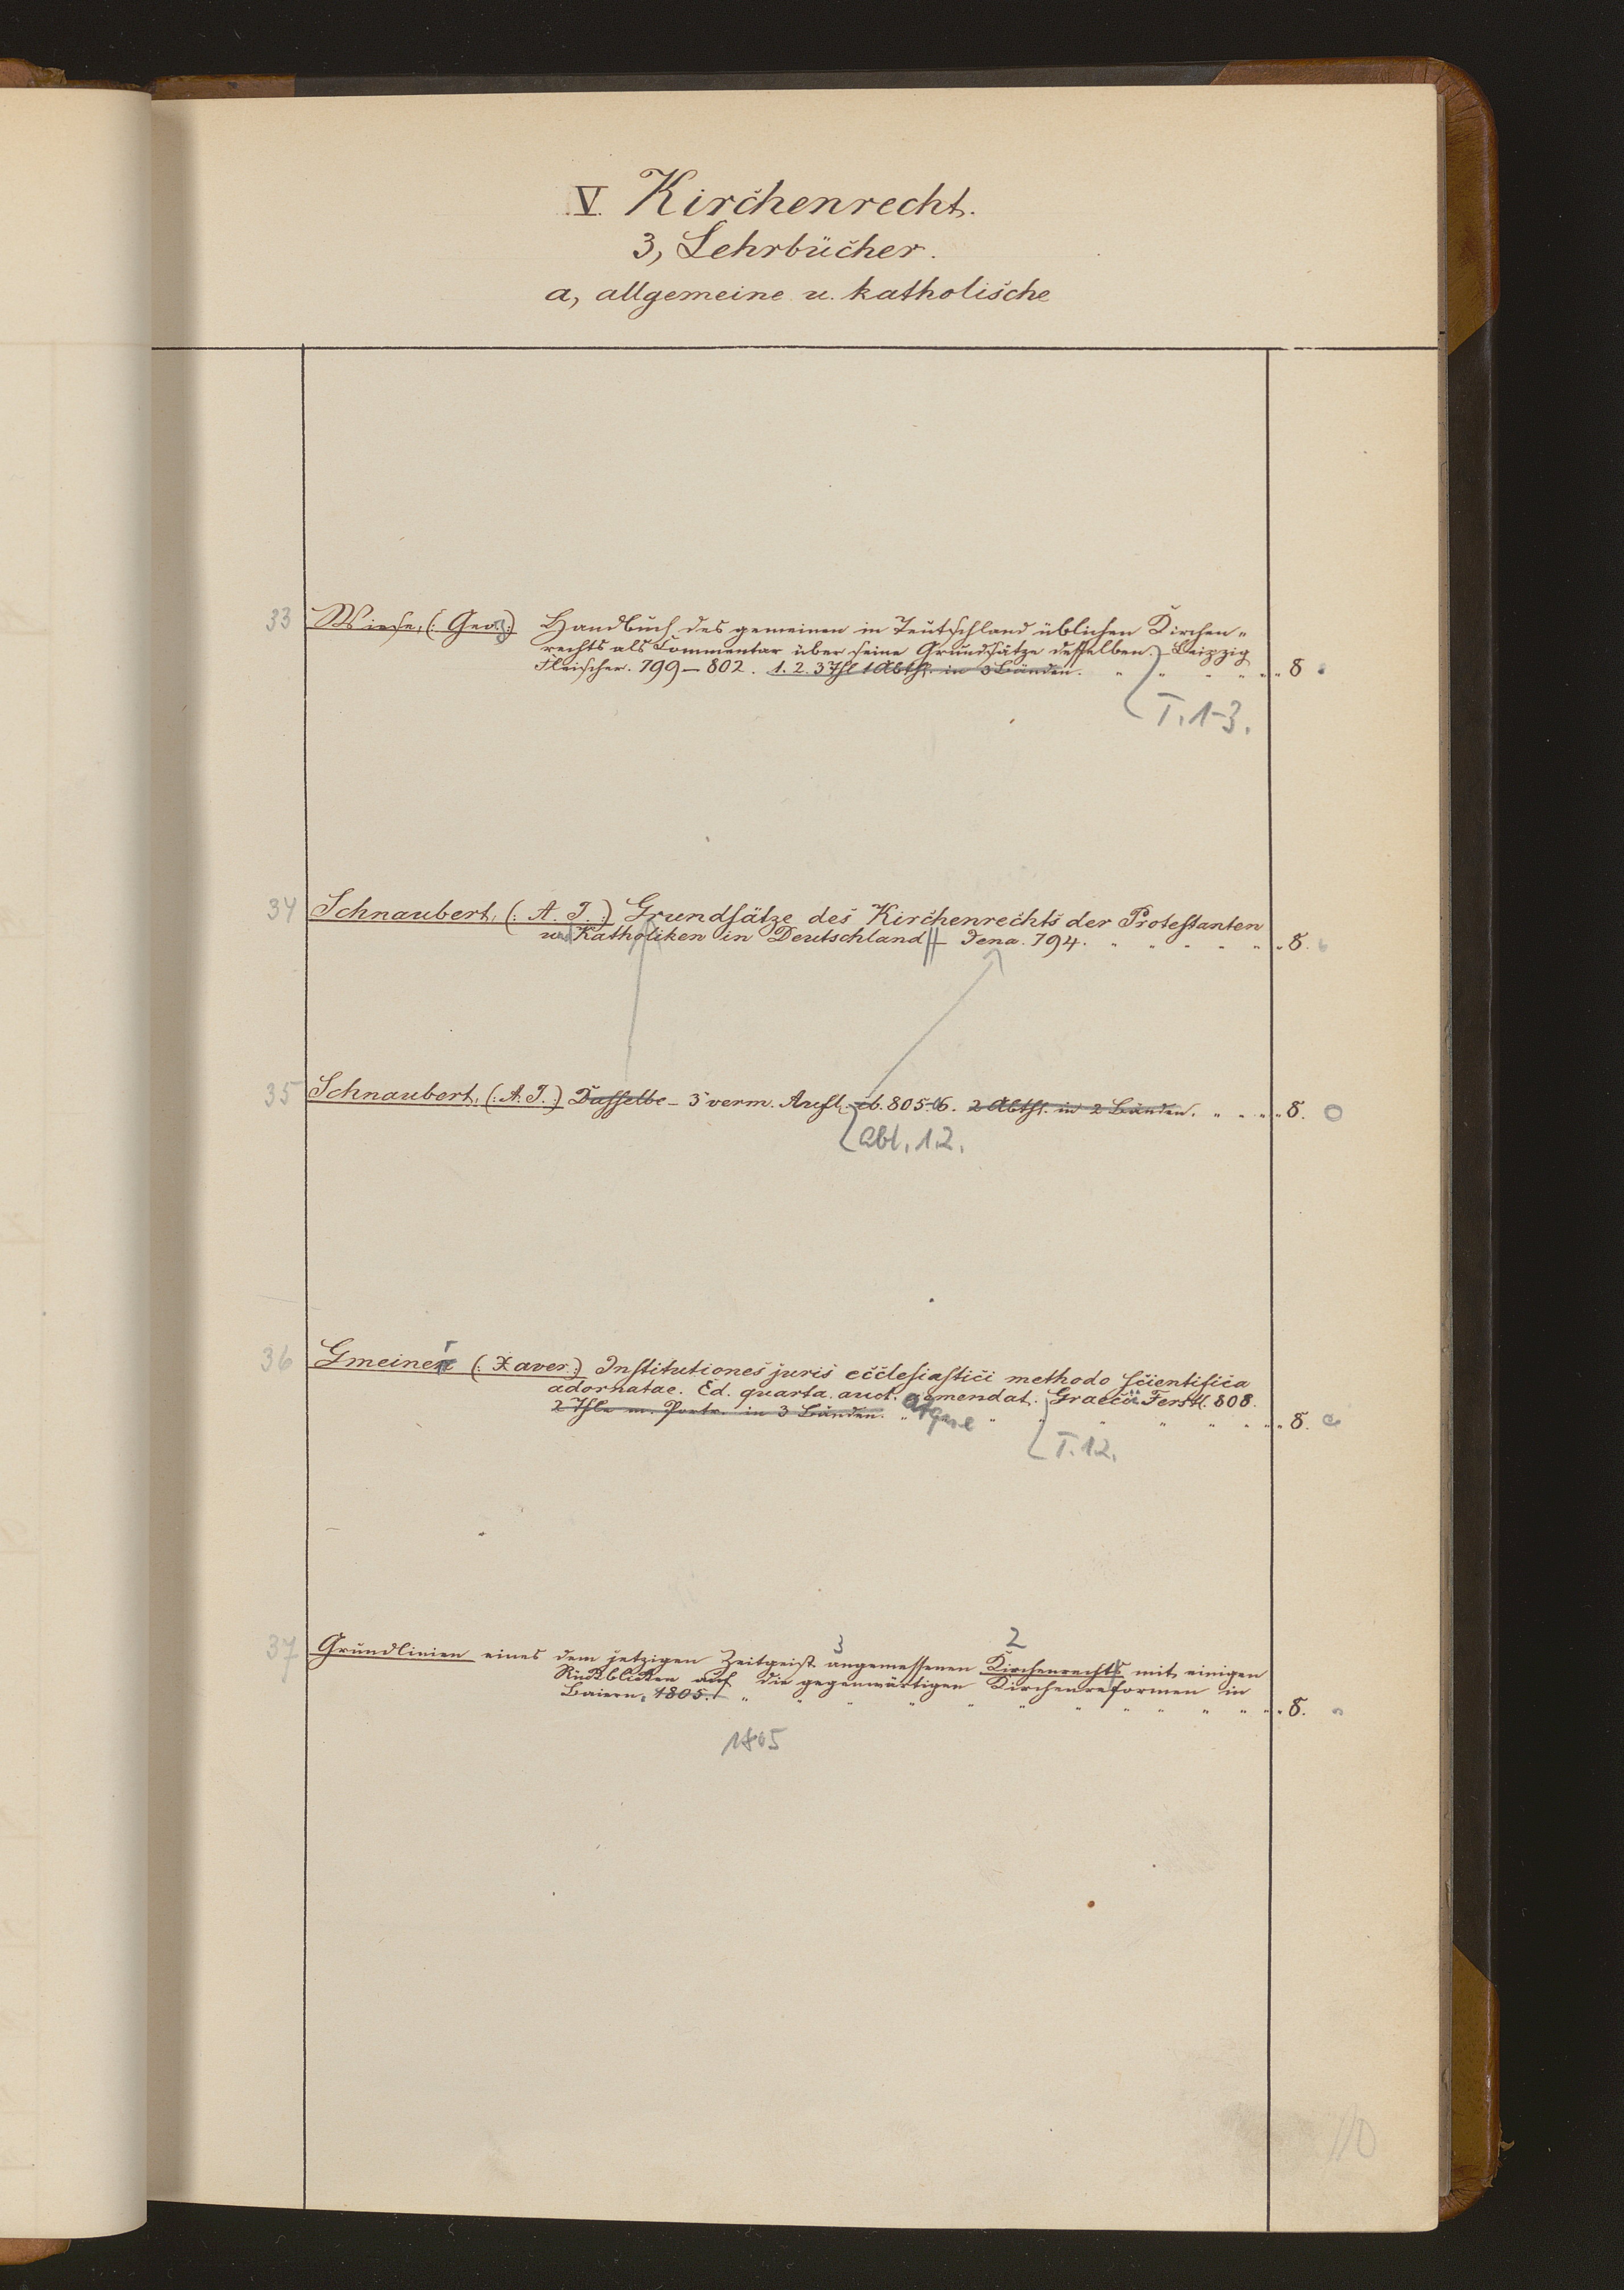 V. Kirchenrecht.
3, Lehrbücher.
a, allgemeine u. katholische
33 Wiese, (: Geo. :) Handbuch des gemeinen in Teutschland üblichen Kirchen„
rechts als Commentar über seine Grundsätze desselben. – Leipzig
Fleischer. 799–802. 1. 2. 3 Thl 1 Abthl. in 3 Bänden. „ „ „ „ „ 8
T. 1-3.
34 Schnaubert, (: A. J. :) Grundsätze des Kirchenrechts der Protestanten
und Katholiken in Deutschland – Jena. 794. „ „ „ „ „ 8.
35 Schnaubert, (: A. J. :) Dasselbe – 3 verm. Aufl. eb. 805-6. 2 Abthl. in 2 Bänden. „ „ „ 8.
Abt. 1.2.
36 Gmeiner (: Xaver :) Institutiones juris ecclesiastici methodo scientifica
adornatae. Ed. quarta. auct. emendat. Graecii Ferstl. 808.
2 Thle m. Portr. in 3 Bänden. „ „ „ „ „ „ 8.
T. 1.2.
3 2
37 Grundlinien eines dem jetzigen Zeitgeist angemessenen Kirchenrechts mit einigen
Rückblicken auf die gegenwärtigen Kirchenreformen in
Baiern. 1805. „ „ „ „ „ „ „ „ „ 8.
1805
110